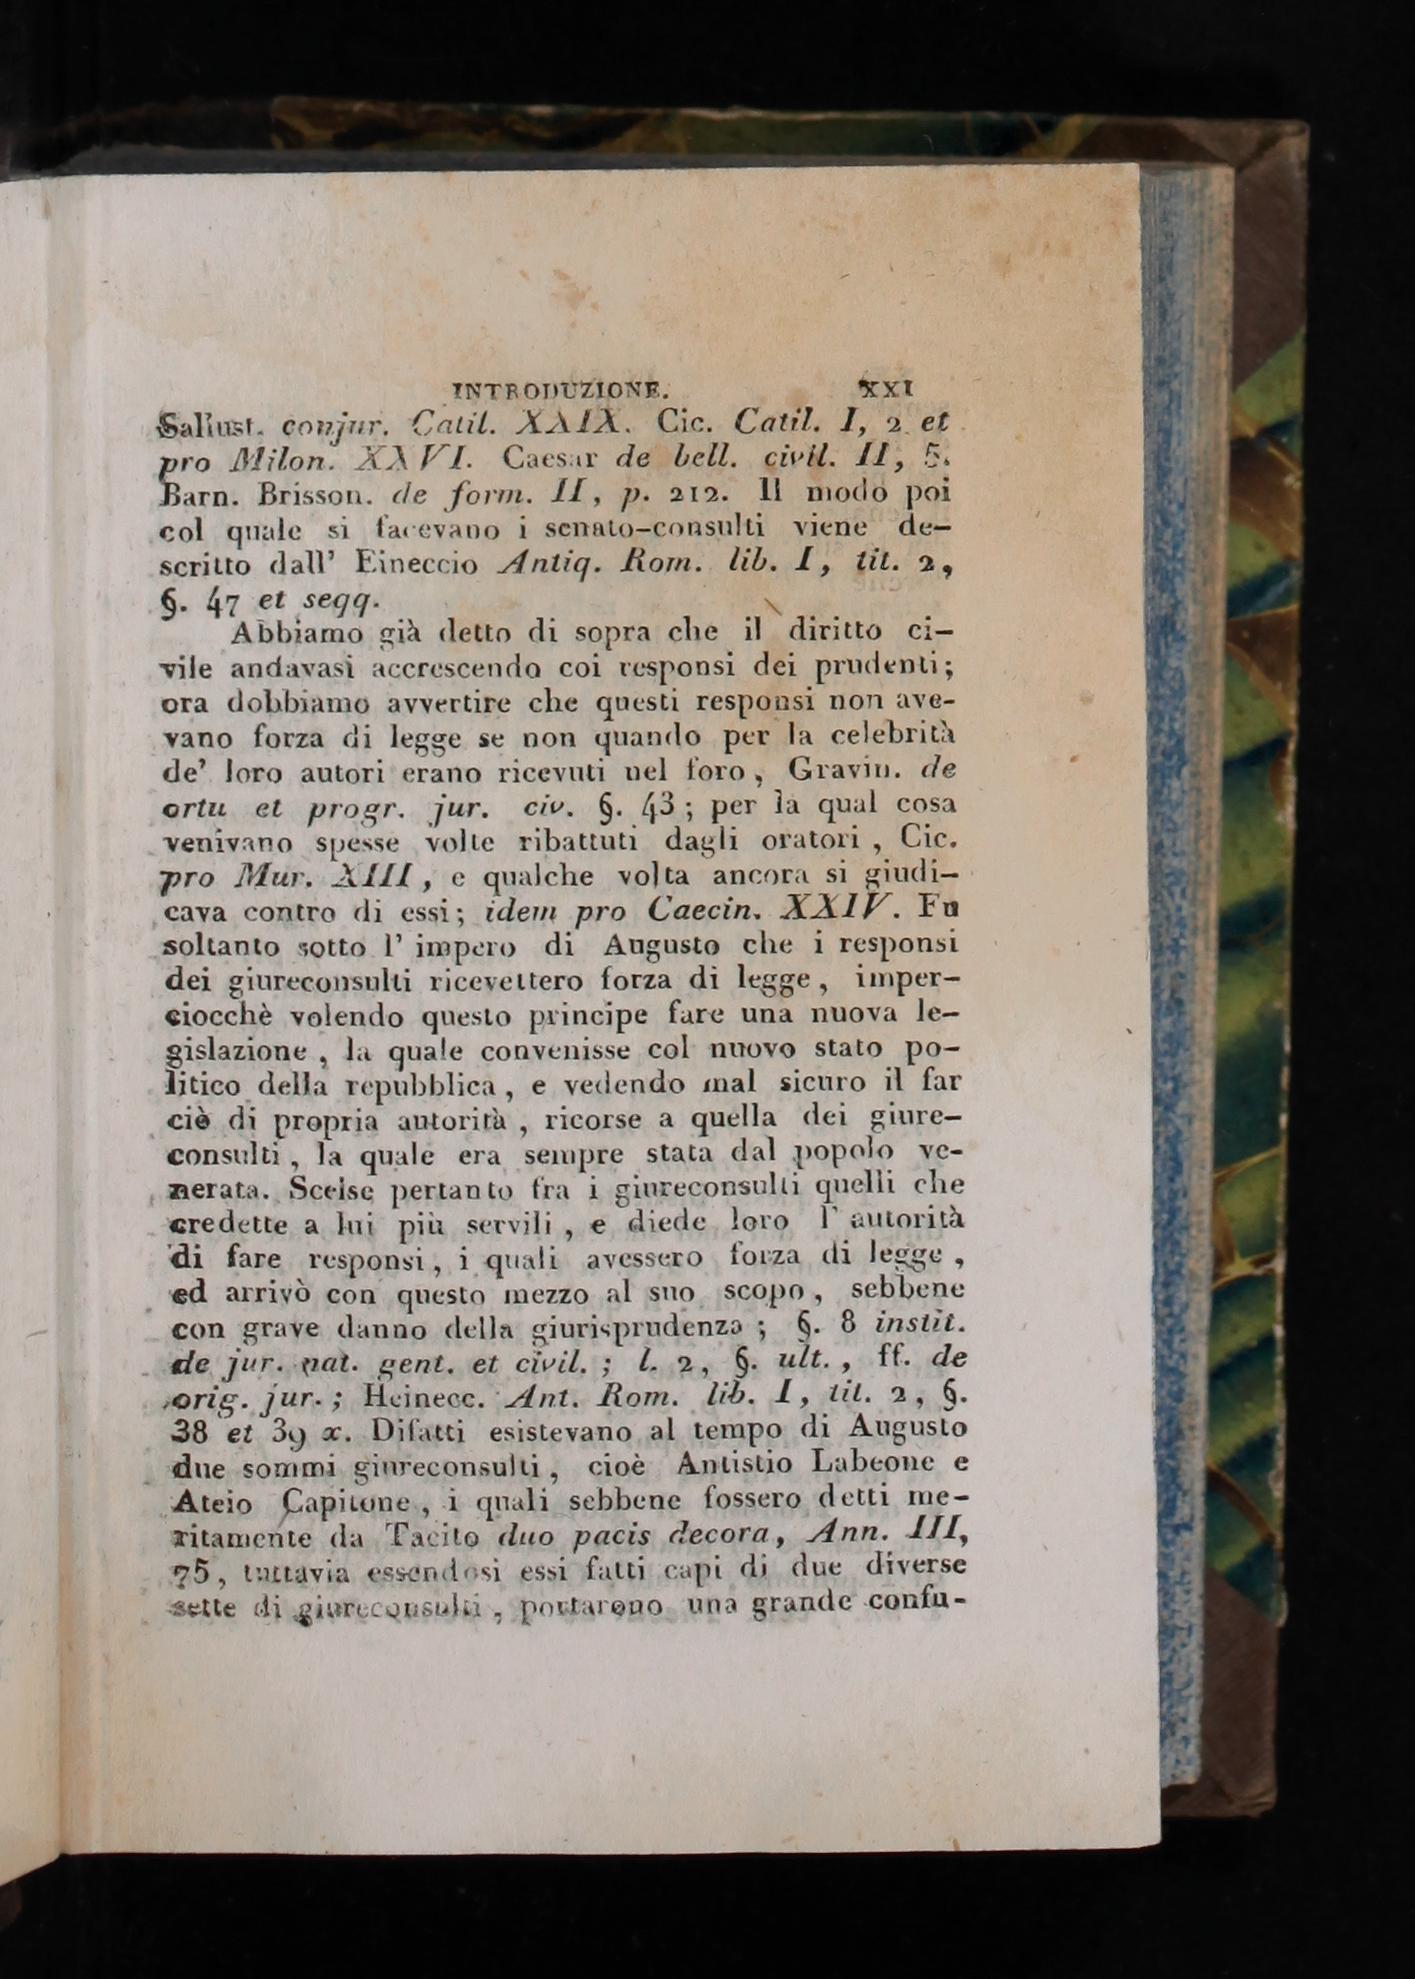 INTRODUZIONE. XXI
Sallust. conjur. Catil. XXIX. Cic. Catil. I, 2 et
pro Milon. XXVI. Caesar de bell. civil. II, 5.
Barn. Brisson. de form. II, p. 212. Il modo poi
col quale si facevano i senato-consulti viene de-
scritto dall' Eineccio Antiq. Rom. lib. I, tit. 2,
§. 47 et seqq.
Abbiamo già detto di sopra che il diritto ci-
vile andavasi accrescendo coi responsi dei prudenti;
ora dobbiamo avvertire che questi responsi non ave-
vano forza di legge se non quando per la celebrità
de' loro autori erano ricevuti nel foro, Gravin. de
ortu et progr. jur. civ. §. 43; per la qual cosa
venivano spesse volte ribattuti dagli oratori, Cic.
pro Mur. XIII, e qualche volta ancora si giudi-
cava contro di essi; idem pro Caecin. XXIV. Fu
soltanto sotto l' impero di Augusto che i responsi
dei giureconsulti ricevettero forza di legge, imper-
ciocchè volendo questo principe fare una nuova le-
gislazione, la quale convenisse col nuovo stato po-
litico della repubblica, e vedendo mal sicuro il far
ciò di propria autorità, ricorse a quella dei giure-
consulti, la quale era sempre stata dal popolo ve-
nerata. Scelse pertanto fra i giureconsulti quelli che
credette a lui più servili, e diede loro l' autorità
di fare responsi, i quali avessero forza di legge,
ed arrivò con questo mezzo al suo scopo, sebbene
con grave danno della giurisprudenza; §. 8 instit.
de jur. nat. gent. et civil.; l. 2, §. ult., ff. de
orig. jur.; Heinecc. Ant. Rom. lib. I, tit. 2, §.
38 et 39 x. Difatti esistevano al tempo di Augusto
due sommi giureconsulti, cioè Antistio Labeone e
Ateio Capitone, i quali sebbene fossero detti me-
ritamente da Tacito duo pacis decora, Ann. III,
75, tuttavia essendosi essi fatti capi di due diverse
sette di giureconsulti, portarono una grande confu-